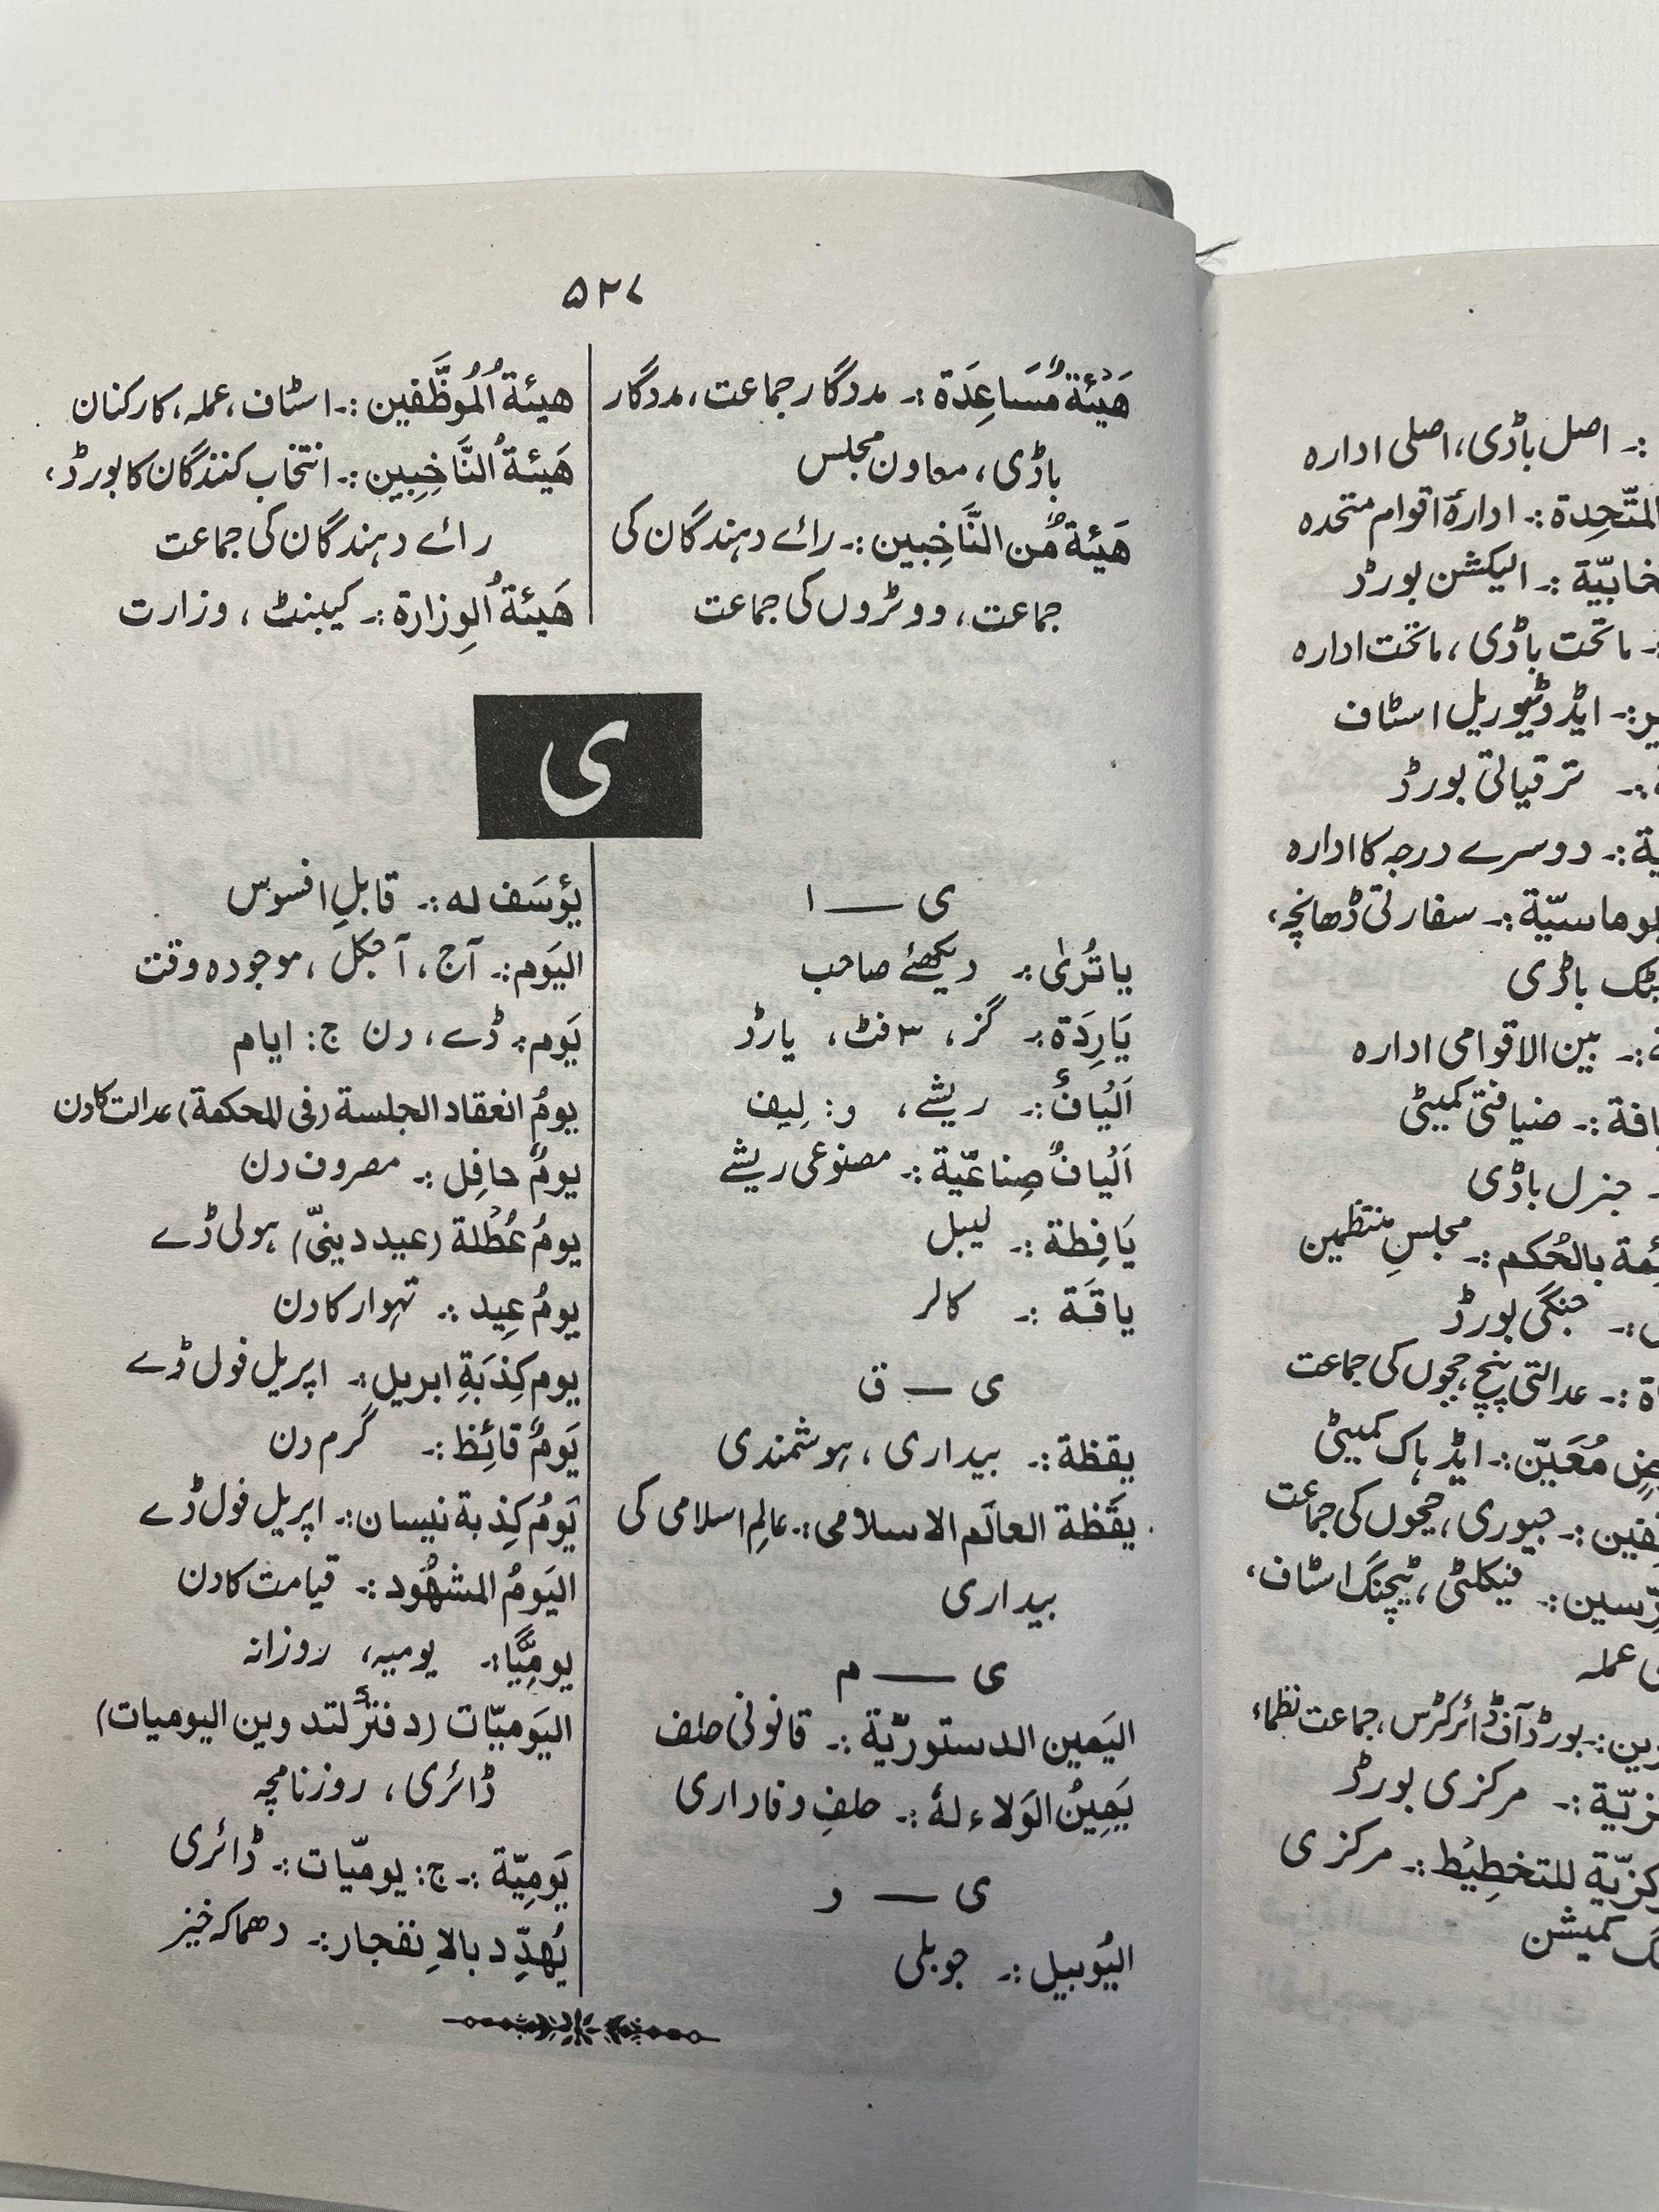 ۵۲۷
هَيْئَةٌ مُّسَاعِدَة :۔ مددگار جماعت، مددگار
باڈی، معاون مجلس
هَيئَةٌ مِّن النَّاخِبِين :۔ رائے دہندگان کی
جماعت، ووٹروں کی جماعت
هيئةُ المُوَظَّفين :۔ اسٹاف، عملہ، کارکنان
هَيئةُ النَّاخِبِين :۔ انتخاب کنندگان کا بورڈ،
رائے دہندگان کی جماعت
هَيئةُ الوِزارة :۔ کیبنٹ، وزارت
ی
ی — ا
ياتُرىٰ :۔ دیکھئے صاحب
يَارِدَة :۔ گز، ۳ فٹ، یارڈ
اَلْيَافٌ :۔ ریشے، و: لِيف
اَلْيافٌ صِناعيّة :۔ مصنوعی ریشے
يَافِطة :۔ لیبل
ياقَة :۔ کالر
ی — ق
يقظة :۔ بیداری، ہوشمندی
يقَظة العالَم الاسلامى :۔ عالمِ اسلامی کی
بیداری
ی — م
اليَمين الدستوريّة :۔ قانونی حلف
يَمِينُ الوَلاء لهٗ :۔ حلفِ وفاداری
ی — و
اليُوبيل :۔ جوبلی
يؤسَف له :۔ قابلِ افسوس
اليَوم :۔ آج، آجکل، موجودہ وقت
يَوم :۔ ڈے، دن ج: ایام
يومُ انعقاد الجلسة (فى المحكمة) عدالت کا دن
يومٌ حافِل :۔ مصروف دن
يومُ عُطْلة (عيد دينىّ) ہولی ڈے
يومُ عِيد :۔ تہوار کا دن
يوم كِذبَةِ ابريل :۔ اپریل فول ڈے
يَومٌ قائِظ :۔ گرم دن
يَومُ كِذبة نيسان :۔ اپریل فول ڈے
اليَومُ المشهُود :۔ قیامت کا دن
يومِيًّا :۔ یومیہ، روزانہ
اليَوميّات (دفترٌ لتدوين اليوميات)
ڈائری، روزنامچہ
يَومِيّة :۔ ج: يوميّات :۔ ڈائری
يُهدِّد بالاِنفجار :۔ دھماکہ خیز
:۔ اصل باڈی، اصلی ادارہ
المتّحِدة :۔ ادارۂ اقوام متحدہ
:۔ الیکشن بورڈ
:۔ ماتحت باڈی، ماتحت ادارہ
:۔ ایڈوٹیوریل اسٹاف
:۔ ترقیاتی بورڈ
:۔ دوسرے درجہ کا ادارہ
:۔ سفارتی ڈھانچہ،
باڈی
:۔ بین الاقوامی ادارہ
:۔ ضیافتی کمیٹی
جنرل باڈی
بالحُكم :۔ مجلسِ منتظمین
:۔ جنگی بورڈ
:۔ عدالتی پنچ، ججوں کی جماعت
مُعَيّن :۔ ایڈہاک کمیٹی
:۔ جیوری، ججوں کی جماعت
:۔ فیکلٹی، ٹیچنگ اسٹاف،
عملہ
:۔ بورڈ آف ڈائرکٹرس، جماعت نظماء
:۔ مرکزی بورڈ
للتخطِيْط :۔ مرکزی
کمیشن